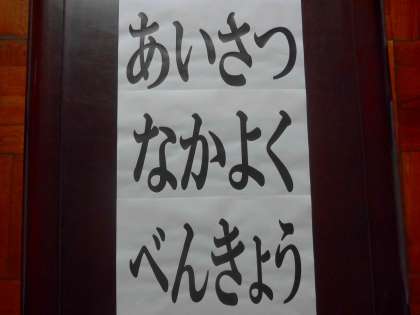 あいさつ
なかよく
べんきょう